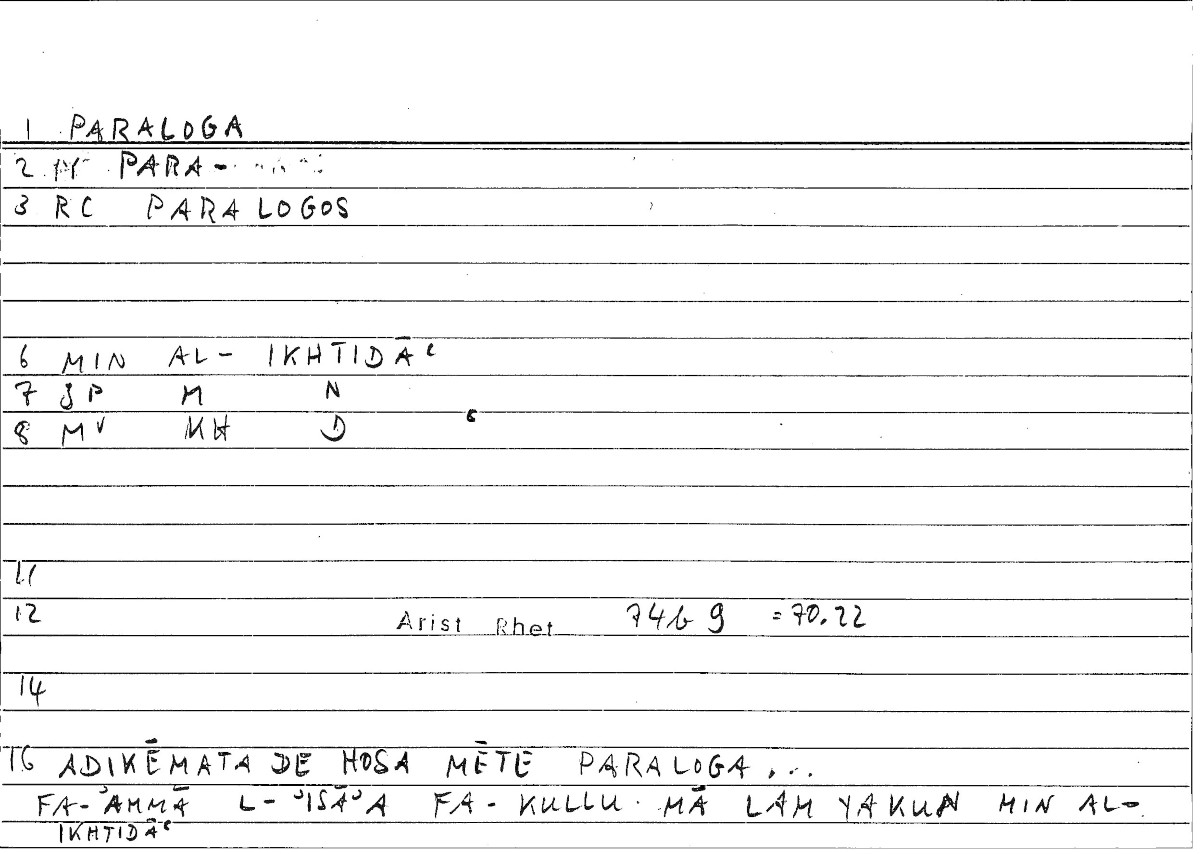 1 PARALOGA
2 PARA-
3 RC PARALOGOS
6 MIN AL- IKHTIDĀʿ
7 SP M N
8 MV KH D ʿ
11
12 Arist Rhet 74b 9 =70.22
14
16 ADIKĒMATA DE HOSA MĒTE PARALOGA...
FA-ʾAMMĀ L-ʾISĀʾA FA-KULLU MĀ LAM YAKUN MIN AL-
IKHTIDĀʿ